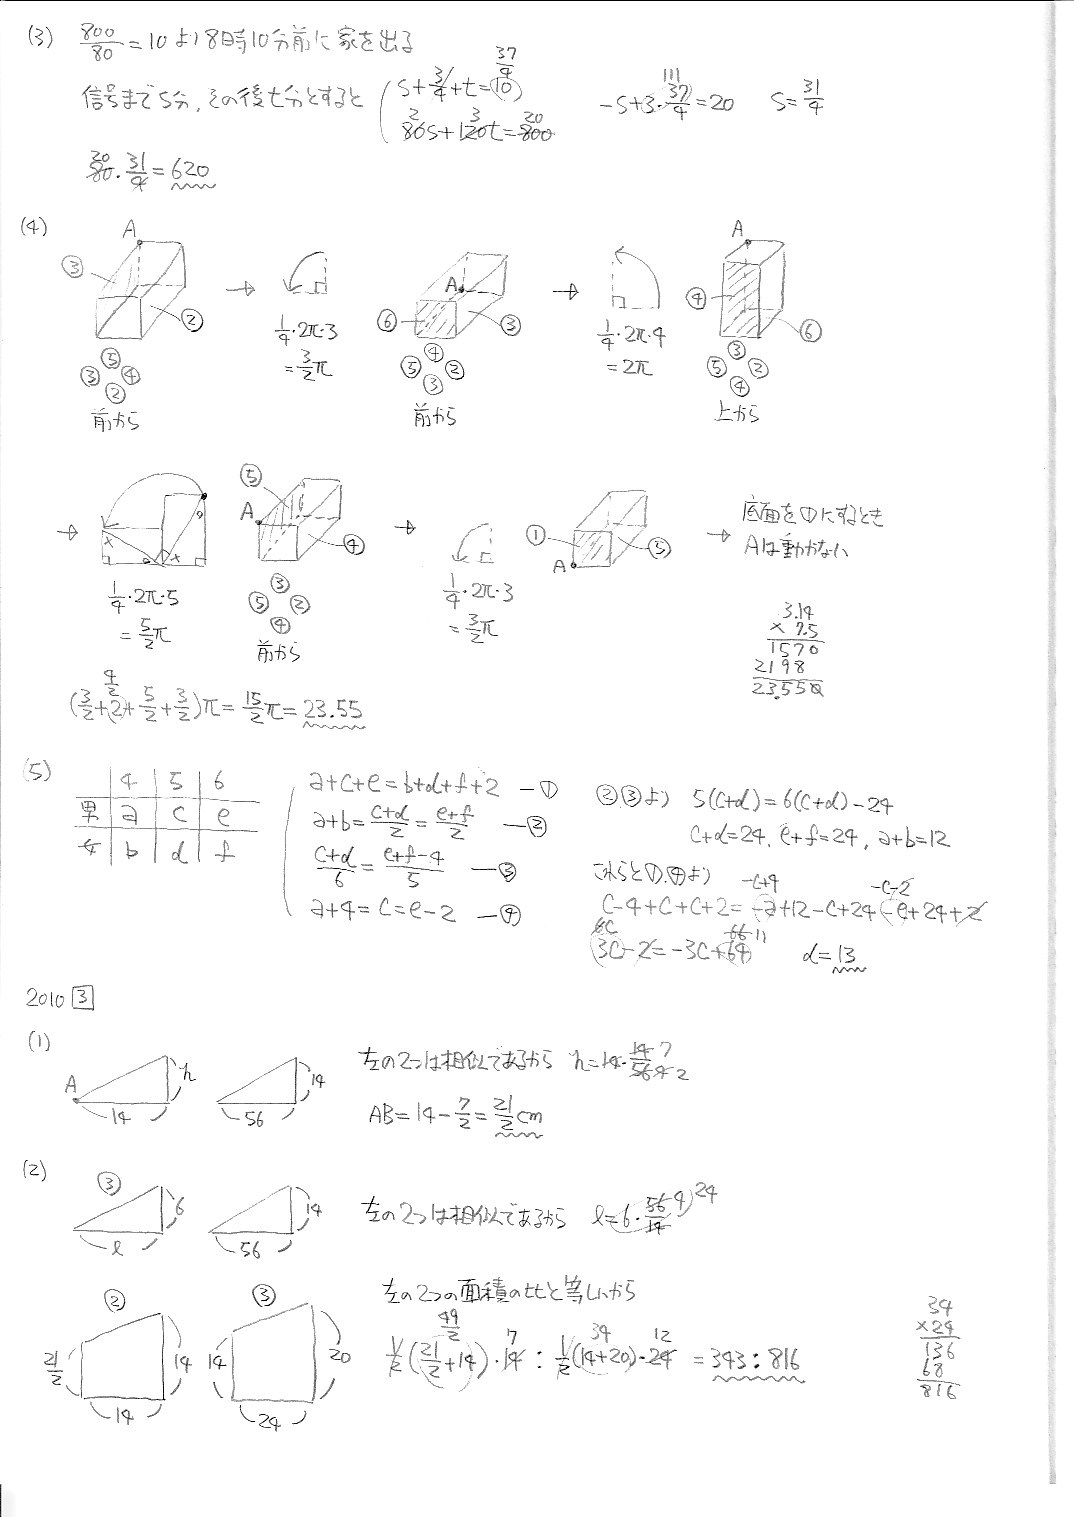 (3) 800/80=10より8時10分前に家を出る
信号までs分,その後t分とすると
s+3/4+t=10 37/4
80s+120t=800 2 3 20
-s+3・37/4=20 111
s=31/4
80・31/4=620 20
(4)
A ③ ②
⑤ ③ ④ ②
前から
→
1/4・2π・3
=3/2π
A ⑥ ③
④ ⑤ ② ③
前から
→
1/4・2π・4
=2π
A ④ ⑥
③ ⑤ ② ④
上から
→
× ○ ○ ×
1/4・2π・5
=5/2π
⑤ A ④
③ ⑤ ② ④
前から
→
1/4・2π・3
=3/2π
① A ③
→ 底面を①にするとき
Aは動かない
3.14
×7.5
1570
2198
23.550
(3/2+2+5/2+3/2)π=15/2π=23.55 4/2
(5)
4 5 6
男 a c e
女 b d f
a+c+e=b+d+f+2 ―①
a+b=c+d/2=e+f/2 ―②
c+d/6=e+f-4/5 ―③
a+4=c=e-2 ―④
②③より 5(c+d)=6(c+d)-24
c+d=24, e+f=24, a+b=12
これらと①,④より -c+4 -c-2
c-4+c+c+2=-a+12-c+24-e+24+2
6c 66 11
3c-2=-3c+64 d=13
2010 3
(1)
A 14 h
56 14
左の2つは相似であるから h=14・14/56 7 4 2
AB=14-7/2=21/2cm
(2)
③ 6 ℓ
14 56
左の2つは相似であるから ℓ=6・56/14 4 24
② 21/2 14 14
③ 14 20 24
左の2つの面積の比と等しいから
49/2 7 34 12
1/2(21/2+14)・14:1/2(14+20)・24=343:816
34
×24
136
68
816